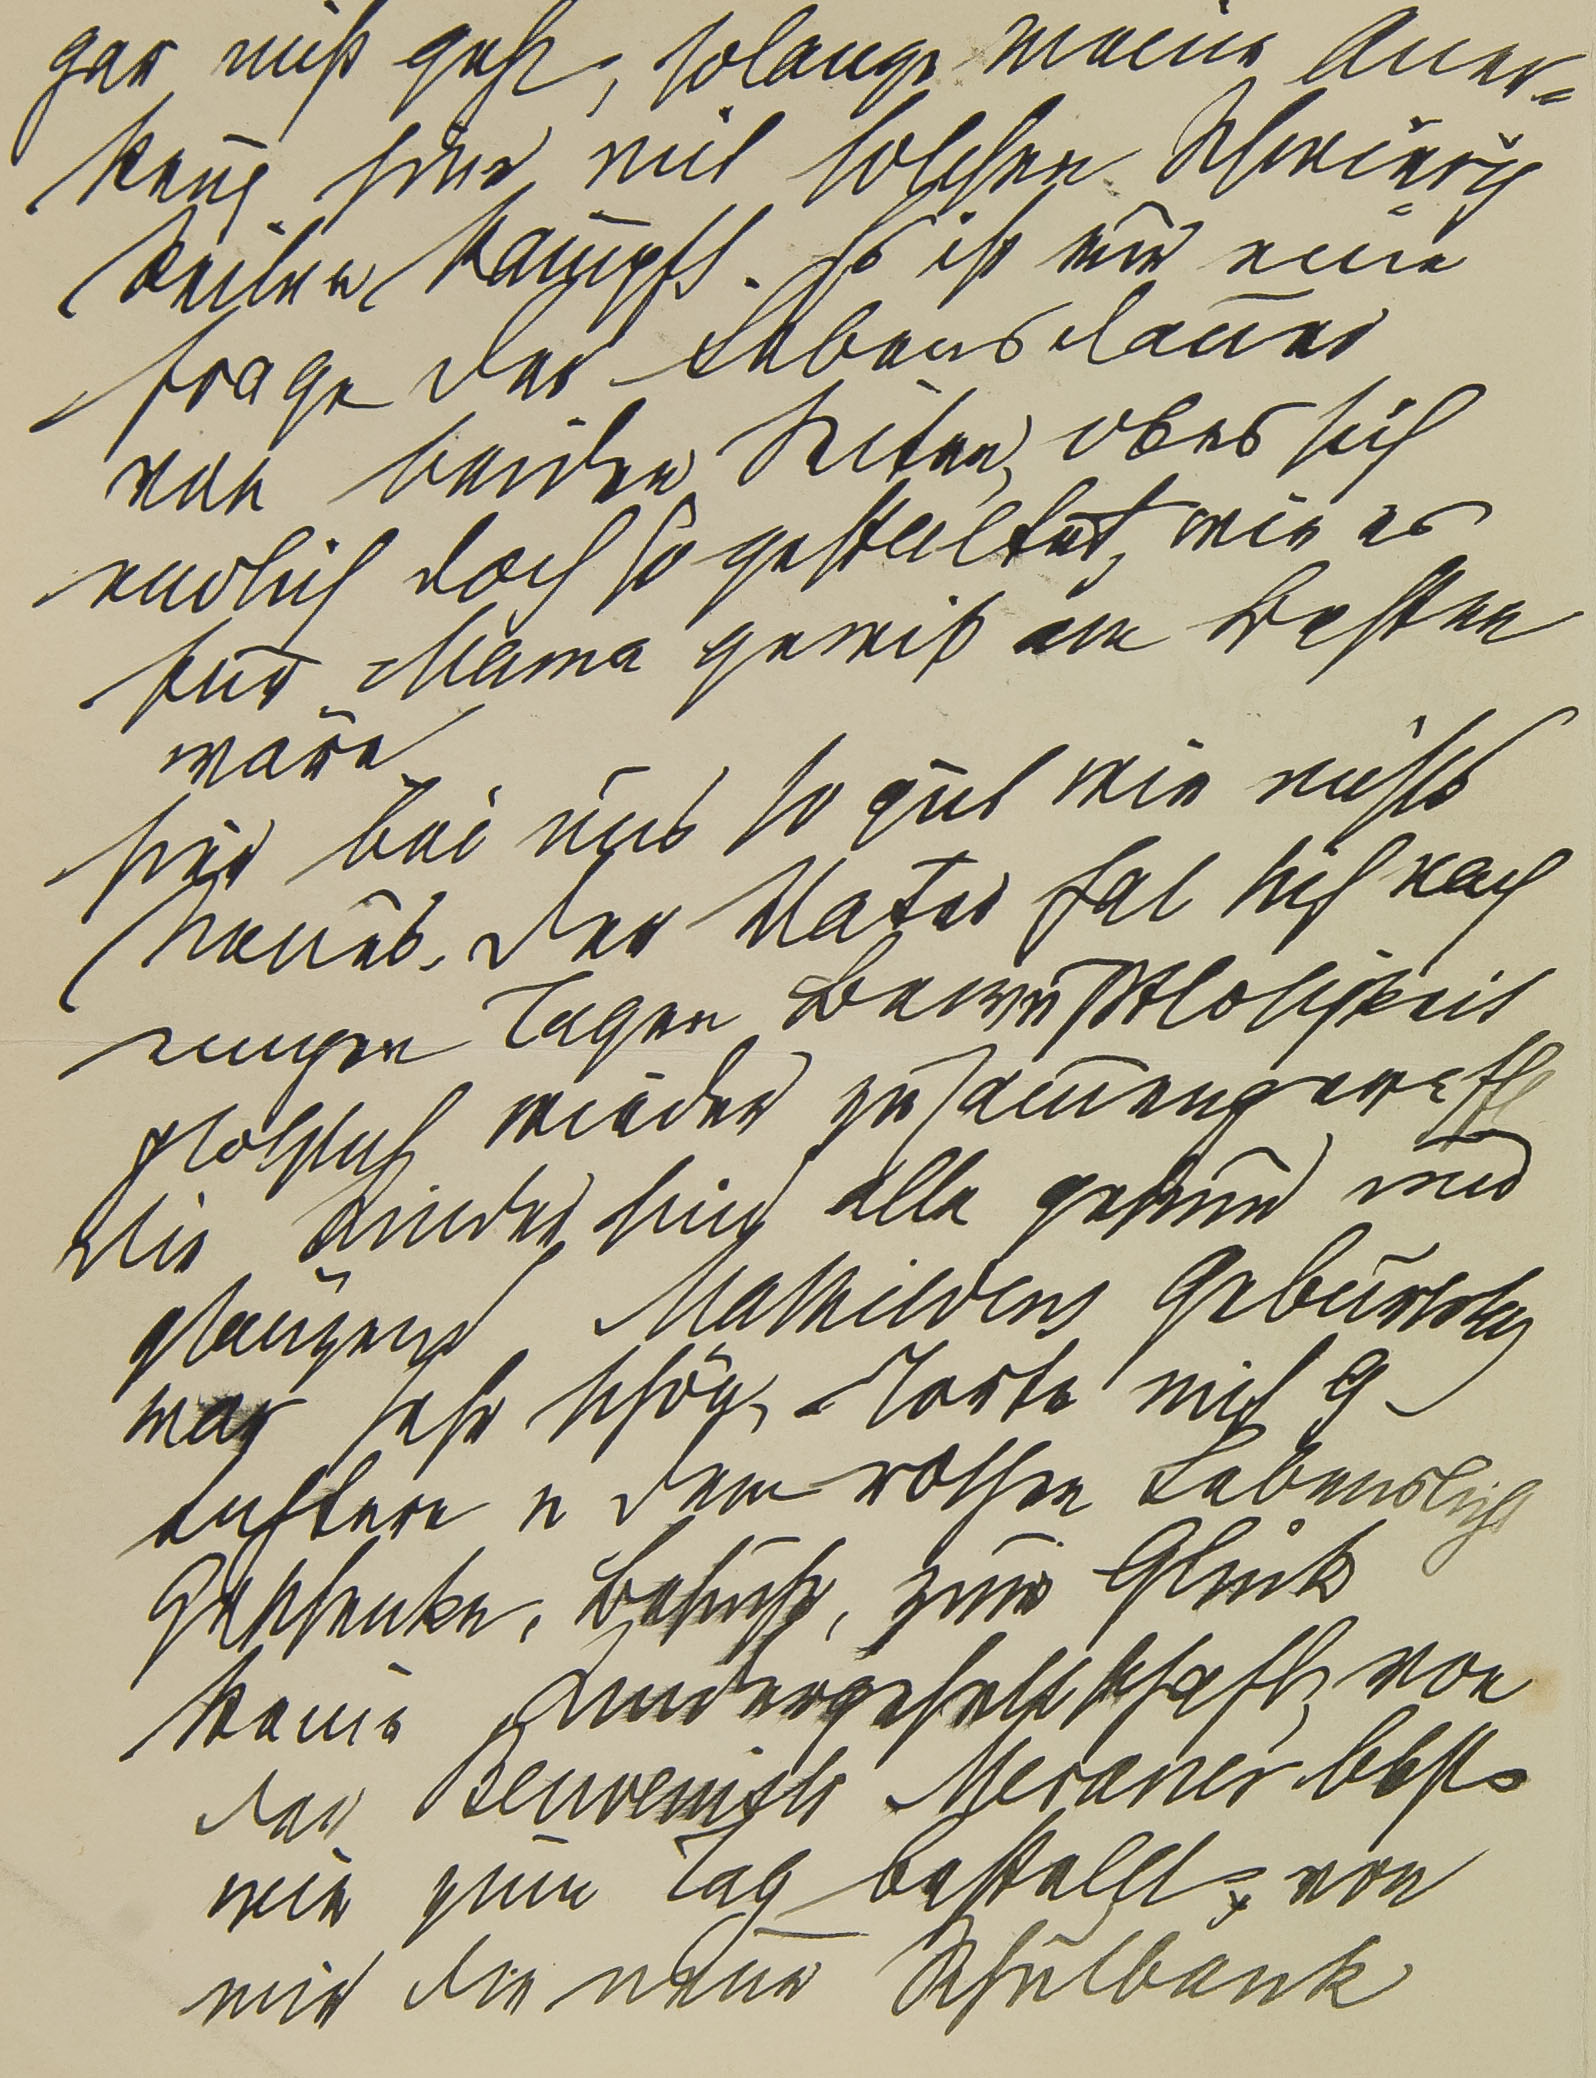 gar nicht geht, solange meine Aner-
kenng hier mit solchen Schwierig
keiten kämpft. Es ist nur eine
Frage der Lebensdauer
von beiden Seiten, ob es sich
endlich doch so gestaltet, wie es
für Mama gewiß am besten
wäre
Hier bei uns so gut wie nichts
Neues. Der Vater hat sich nach
einigen Tagen Bewußtlosigkeit
plötzlich wieder zusammengerafft
Die Kinder sind alle gesund und
glänzend Mathildens Geburtstag
war sehr schön, Torte mit 9
Lichtern u dem rothen Lebenslicht
Geschenke, Besuche, zum Glück
keine Kindergesellschaft, von
der Benvenisti Meraner Obst
wie zum Tag bestellt, von
mir die neue Schulbank